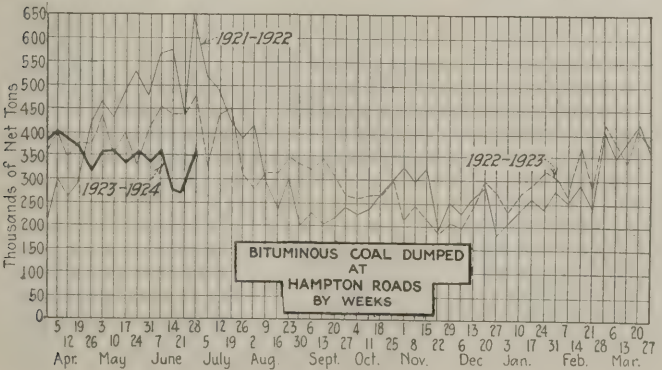 650
600
550
500
450
400
350
300
250
200
150
100
50
0
Thousands of Net Tons
1921-1922
1922-1923
1923-1924
BITUMINOUS COAL DUMPED
AT
HAMPTON ROADS
BY WEEKS
5 19 3 17 31 14 28 12 26 9 23 6 20 4 18 1 15 29 13 27 10 24 7 21 6 20
12 26 10 24 7 21 5 19 2 16 30 13 27 11 25 8 22 6 20 3 17 31 14 28 13 27
Apr. May June July Aug. Sept. Oct. Nov. Dec Jan. Feb. Mar.